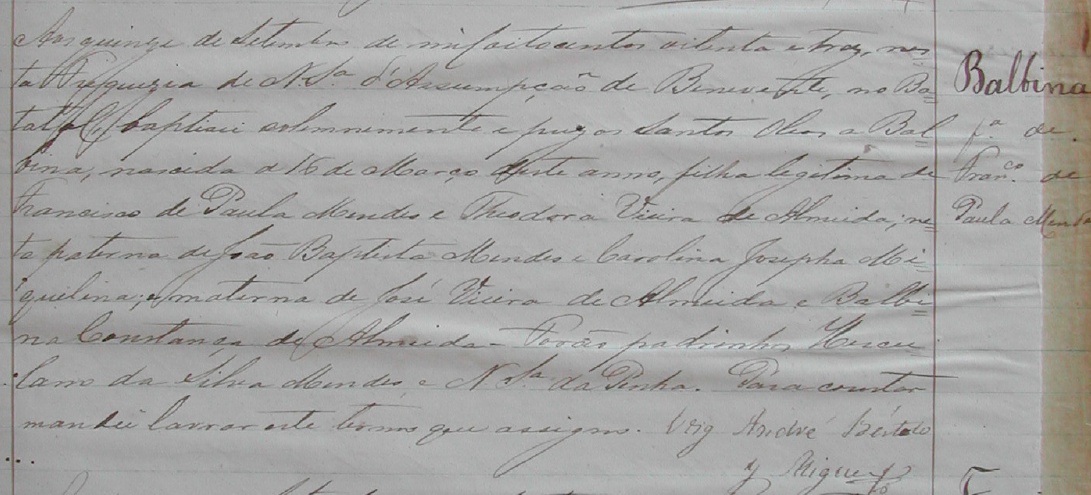 Aos quinze de Setembro de mil oitocentos oitenta e tres, nes=
ta Freguezia de N. Sª d'Assumpção de Benevente, no Ba=
tatal, baptisei solemnemente e puz os Santos Oleos a Bal=
bina, nascida a 16 de Março deste anno, filha legitima de
Francisco de Paula Mendes e Theodora Vieira de Almeida; ne=
ta paterna de João Baptista Mendes e Carolina Josepha Mi=
quelina; e materna de José Vieira de Almeida e Balbi=
na Constança de Almeida - Forão padrinhos Hercu=
lano da Silva Mendes e N. Sª da Penha. Para constar
mandei lavrar este termo que assigno. Vig André
y Miguel
Balbina
fª. de
Franco. de
Paula Mendes